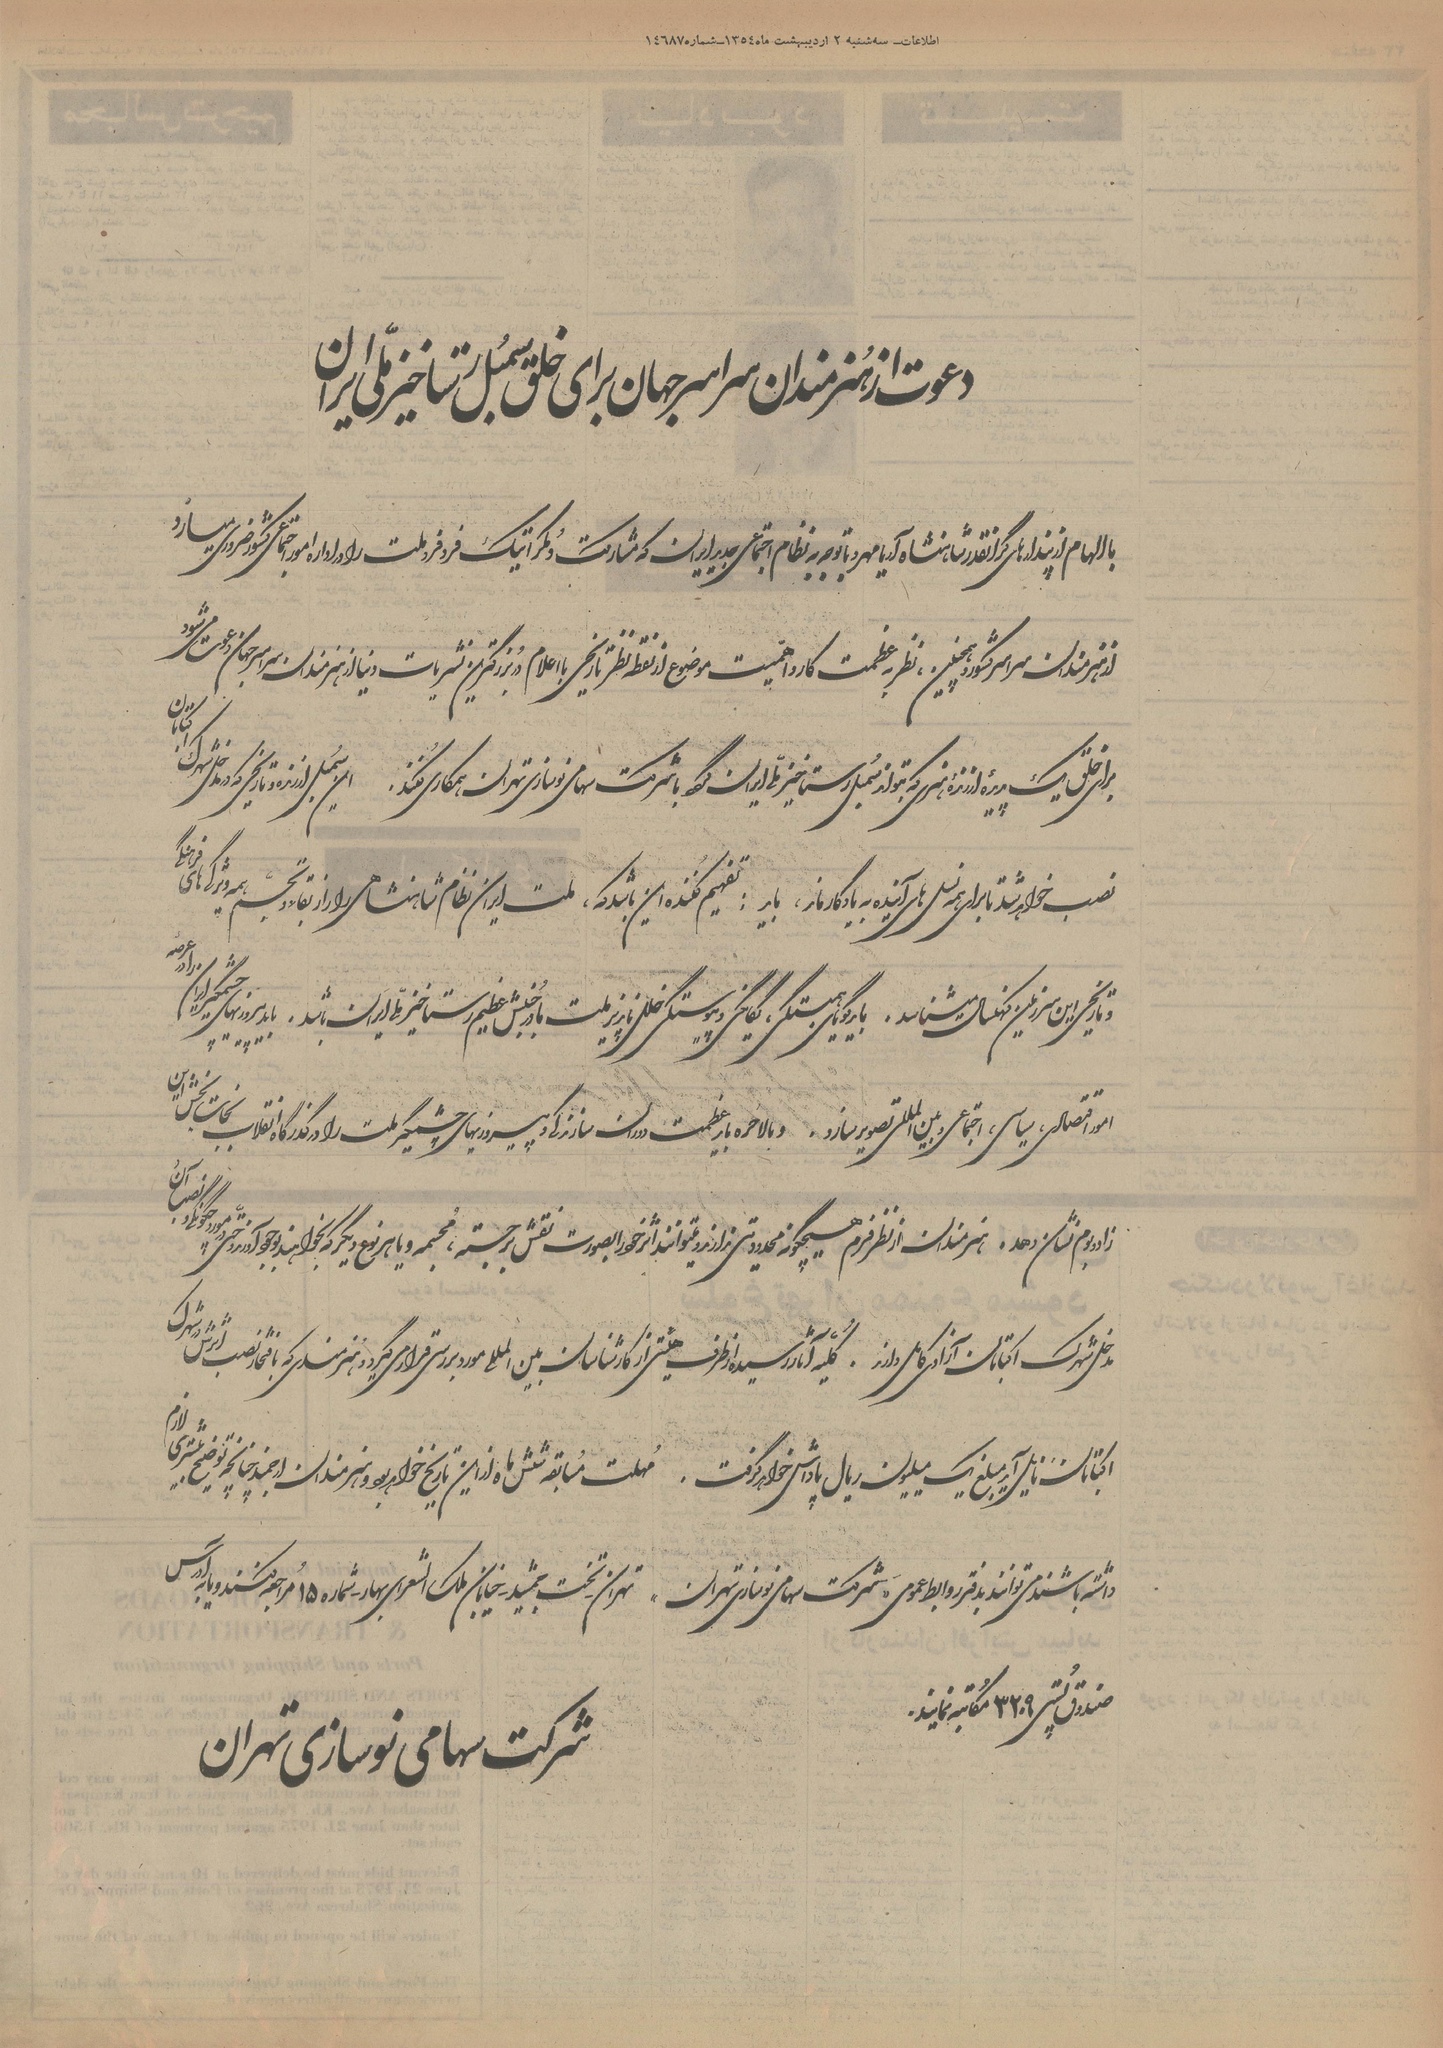 اطلاعات ـ سه‌شنبه ۲ اردیبهشت ماه ۱۳۵۴ ـ شماره ۱۴۶۸۷
دعوت از هُنرمندان سراسر جهان برای خلق سمُبل رستاخیز ملّی ایران
با الهام از پندارهای گرانقدر شاهنشاه آریامهر و با توجه به نظام اجتماعی جدید ایران که مشارکت دُمکراتیک فرد فرد ملت را در اداره امور اجتماعی کشور ضروری میسازد
از هنرمندان سراسر کشور و همچنین، نظر به عظمت کار و اهمّیت موضوع از نقطه نظر تاریخی با اعلام در بزرگترین نشریات دنیا از هنرمندان سراسر جهان دعوت می‌شود
برای خلق یک پدیدهٔ ارزندهٔ هنری که بتواند سُمبل رستاخیز ملّی ایران گردد با شرکت سهامی نوسازی تهران همکاری کُنند. این سُمبل ارزنده و تاریخی که در مدخل شهرک اکباتان
نصب خواهد شد تا برای همه نسل‌های آینده به یادگار ماند، باید: تفهیم کُننده این باشد که، ملت ایران نظام شاهنشاهی را راز بقاء و تجسّم همه ویژگی‌های فرهنگی
و تاریخی این سرزمین کهنسال میشناسد. باید گویای همبستگی، یگانگی و پیوستگی خلل ناپذیر ملت با جُنبش عظیم رستاخیز ملّی ایران باشد. باید پیروزیهای چشمگیر ایران را در عرصهٔ
امور اقتصادی، سیاسی، اجتماعی و بین‌المللی تصویر سازد. و بالاخره باید عظمت دوران سازندگی و پیروزیهای چشمگیر ملت را در گذرگاه انقلاب نجات بخش این
زاد و بوم نشان دهد. هنرمندان از نظر فرم هیچگونه محدودیتی ندارند و میتوانند اثر خود را بصورت نقش برجسته، مُجسمه و یا هر نوع دیگر که بخواهند بوجود آورند و حتّی در مورد چگونگی نصب آن در
مدخل شهرک اکباتان آزادی کامل دارند. کُلّیه آثار رسیده از طرف هیئتی از کارشناسان بین‌المللی مورد بررسی قرار می‌گیرد و هنرمندی که بافتخار نصب اثرش در شهرک
اکباتان نایل آید مبلغ یک میلیون ریال پاداش خواهد گرفت. مُهلت مُسابقه شش ماه از این تاریخ خواهد بود و هنرمندان ارجمند چنانچه توضیح بیشتری لازم
داشته باشند می‌توانند بدفتر روابط عمومی «شرکت سهامی نوسازی تهران» تهران ـ تخت جمشید ـ خیابان ملک الشعرای بهار ـ شماره ۱۵ مُراجعه کنند و یا به آدرس
صندوق پُستی ۳۲۰۹ مُکاتبه نمایند.
شرکت سهامی نوسازی تهران